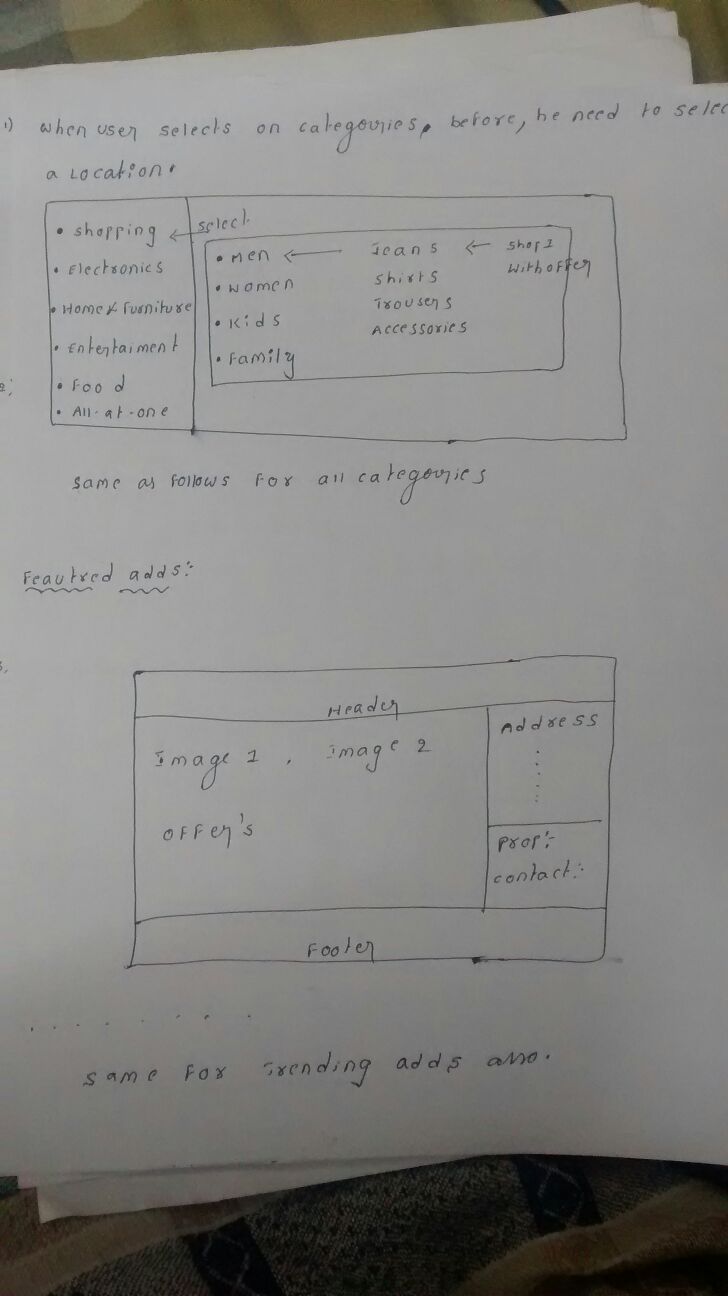 1) when user selects on categouries, before, he need to selec
a Location.
• shopping
select
• Electronics
• Home & Furniture
• Entertaiment
• Food
• All-at-one
• Men
Jeans
shop1
with offer
• women
shirts
• Kids
Trousers
• Family
Accessories
same as follows For all categouries
Feautred adds:-
Header
Image 1 , Image 2
Address
offer's
prop:-
contact:-
Footer
same For Trending adds also.